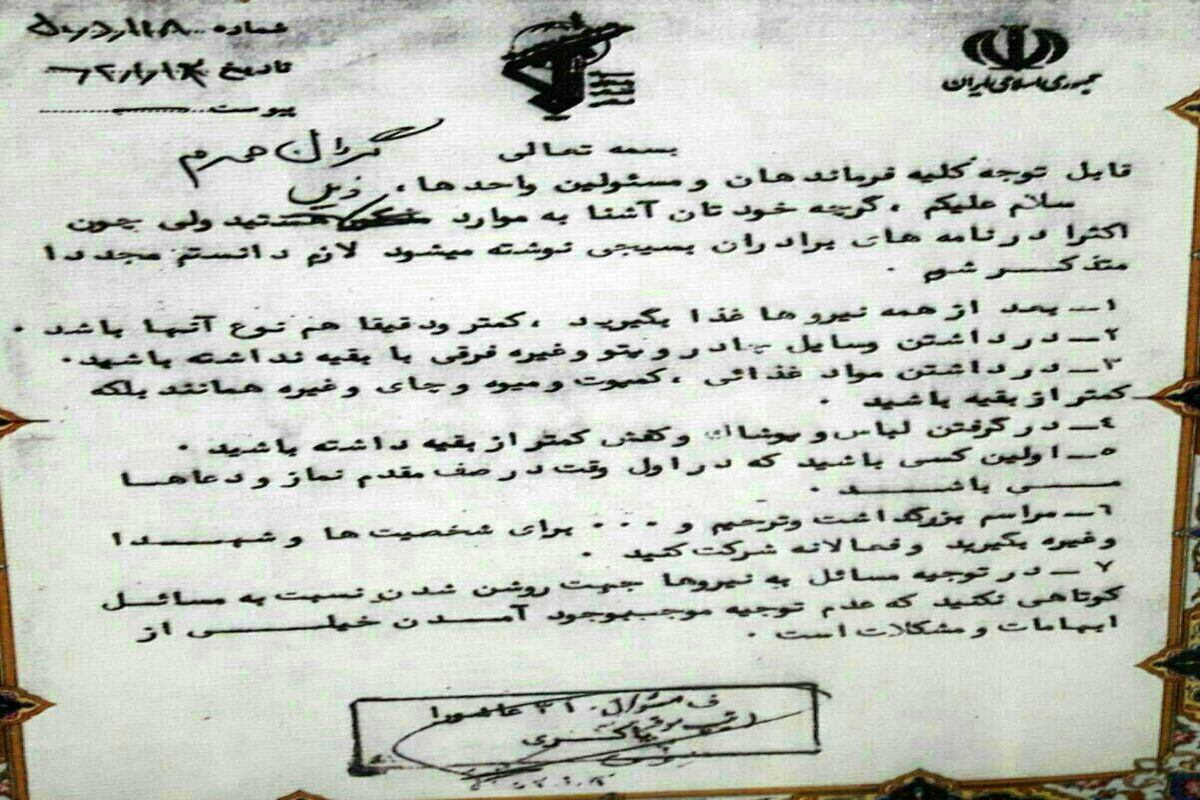 جمهوری اسلامی ایران
شماره
تاریخ
پیوست
بسمه تعالی
گردان
قابل توجه کلیه فرماندهان و مسئولین واحدها،
سلام علیکم ، گرچه خودتان آشنا به موارد ذیل هستید ولی چون
اکثرا در نامه های برادران بسیجی نوشته میشود لازم دانستم مجددا
متذکر شوم .
۱ــ بعد از همه نیروها غذا بگیرید ، کمتر ودقیقا هم نوع آنها باشد .
۲ــ در داشتن وسایل چادر و پتو وغیره فرقی با بقیه نداشته باشید.
۳ــ در داشتن مواد غذائی ، کمپوت و میوه و چای وغیره همانند بلکه
کمتر از بقیه باشید .
٤ــ در گرفتن لباس و پوشاک وکفش کمتر از بقیه داشته باشید .
۵ــ اولین کسی باشید که در اول وقت در صف مقدم نماز و دعاهـا
مـــی باشـــد .
٦ــ مراسم بزرگداشت وترحیم و ۰۰۰ برای شخصیت ها و شهـــدا
وغیره بگیرید وفعالانه شرکت کنید .
۷ ــ در توجیه مسائل به نیروها جهت روشن شدن نسبت به مسائـــل
کوتاهی نکنید که عدم توجیه موجببوجود آمـدن خیلـــی از
ابهامات و مشکلات است .
ف مسئول ۳۱ عاشورا